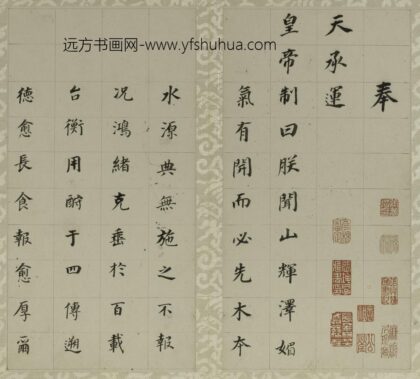 远方书画网-www.yfshuhua.com
奉
天承運
皇帝制曰朕聞山輝澤媚
氣有開而必先木本
水源典無施之不報
况鴻緒克垂於百載
台衡用酧于四傳遡
德愈長食報愈厚爾